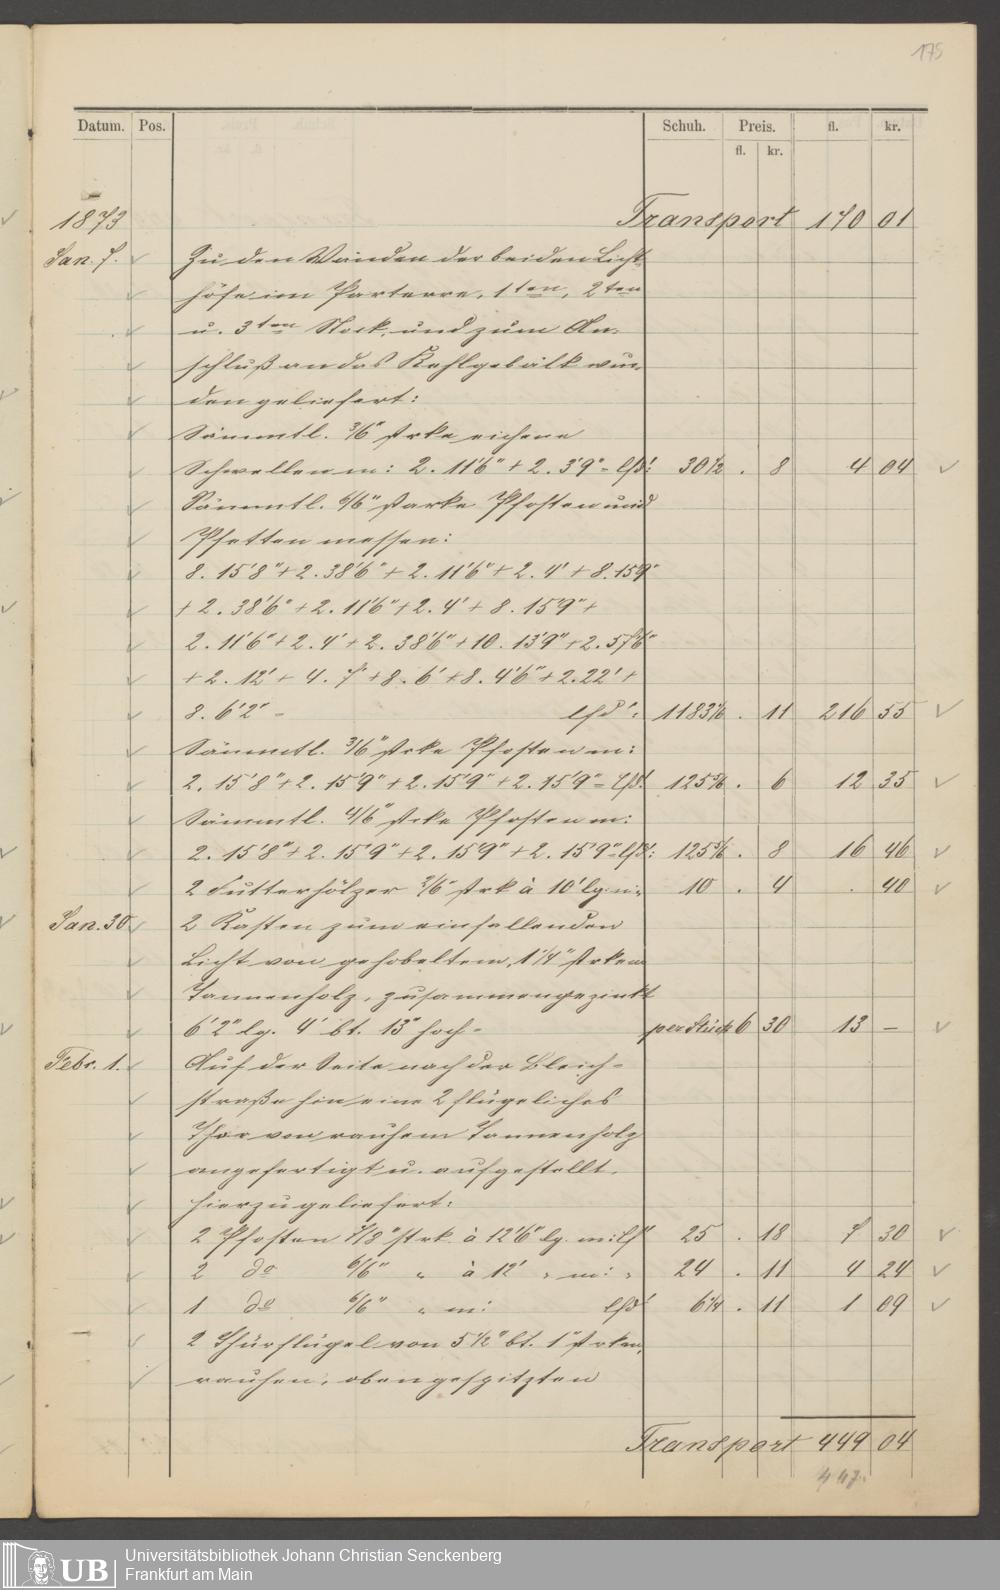 175
Datum. Pos. Schuh. Preis. fl. kr.
fl. kr.
1873 Transport 170 01
Jan. 7. Zu den Wänden der beiden Licht-
höfe im Parterre, 1ten, 2ten
u. 3ten Stock, und zum An-
schluß an das Kehlgebälk wur-
den geliefert:
Sämmtl. 3/6" strke eichene
Schwellen m: 2. 11'6" + 2. 3'9" = lfd': 30 1/2 . 8 4 04
Sämmtl. 6/6" starke Pfosten und
Pfetten messen:
8. 15'8" + 2. 38'6" + 2. 11'6" + 2. 4' + 8. 15'9"
+ 2. 38'6" + 2. 11'6" + 2. 4' + 8. 15'9" +
2. 11'6" + 2. 4' + 2. 38'6" + 10. 13'9" + 2. 57'6"
+ 2. 12' + 4. 7' + 8. 6' + 8. 4'6" + 2. 22' +
8. 6'2" = lfd': 1183 1/6 . 11 216 55
Sämmtl. 3/6" strke Pfosten m:
2. 15'8" + 2. 15'9" + 2. 15'9" + 2. 15'9" = lfd': 125 5/6 . 6 12 35
Sämmtl. 4/6" stcke Pfosten m:
2. 15'8" + 2. 15'9" + 2. 15'9" + 2. 15'9" = lfd': 125 5/6 . 8 16 46
2 Futterhölzer 2/6" strk à 10' lg. m: 10 . 4 . 40
Jan. 30. 2 Kasten zum einfallenden
Licht von gehobeltem, 1 1/4" strkem
Tannenholz, zusammengezinkt
6'2" lg. 4' bt. 13" hoch = per Stück 6 30 13 —
Febr. 1. Auf der Seite nach der Bleich-
straße hin eine 2 flügeliches
Thor von rauhem Tannenholz
angefertigt u. aufgestellt.
hierzu geliefert:
2 Pfosten 7/8" strk. à 12'6" lg. m: lf' 25 . 18 7 30
2 do 6/6" " à 12' " m: " 24 . 11 4 24
1 do 6/6" " m: lfd' 6 1/4 . 11 1 09
2 Thürflügel von 5 1/2" bt. 1" strken,
rauhen, oben gespitzten
Transport 449 04
447.
UB Universitätsbibliothek Johann Christian Senckenberg
Frankfurt am Main